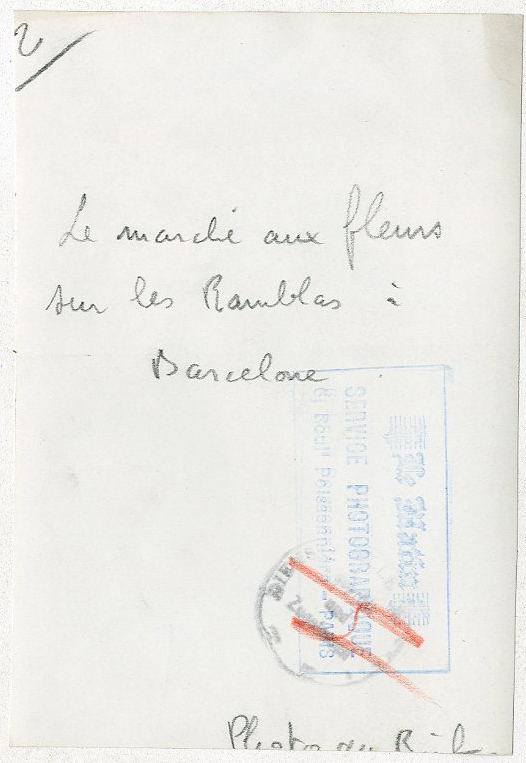 2
Le marché aux fleurs
sur les Ramblas à
Barcelone
Le Matin
SERVICE PHOTOGRAPHIQUE
6, Boulᵈ Poissonnière _ PARIS
Photo